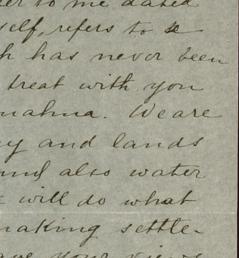 to me dated
self, refers to
has never been
treat with you
We are
and lands
and also water
will do what
making settle-
your views